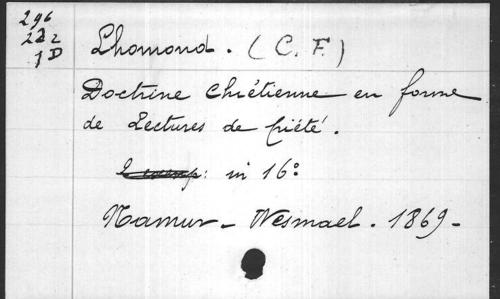 296
222
1D
Lhomond. (C. F.)
Doctrine Chrétienne en forme
de Lectures de piété.
in 16°
Namur - Wesmael. 1869-